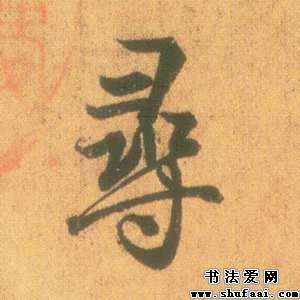 尋
书法爱网
www.shufaai.com